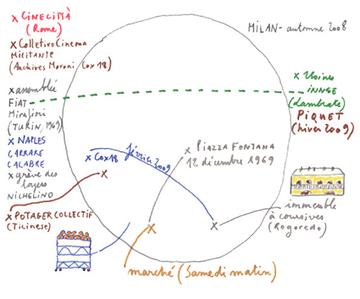 x CINECITTÀ
(Rome)
x Colletivo Cinema
Militante
(Archives Moroni Cox 18)
x assemblée
FIAT
Mirafiori
(TURIN, 1969)
x NAPLES
CARRARE
CALABRE
x grève des
loyers
NICHELINO
x POTAGER COLLECTIF
(Ticinese)
MILAN - automne 2008
x Usines
INNSE
(Lambrate)
PIQUET
(hiver 2009)
x Cox 18
février 2009
x PIAZZA FONTANA
12 décembre 1969
immeuble
à coursives
(Rogoredo)
marché (Samedi matin)